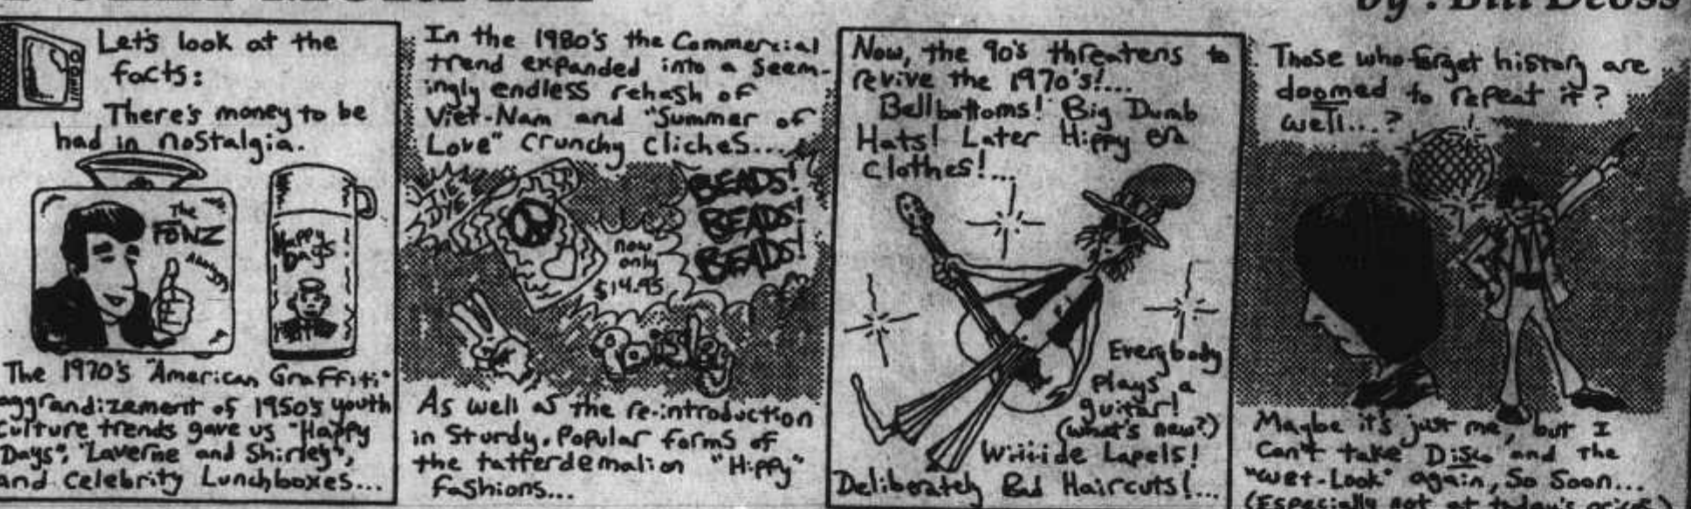 by : Bill
Let's look at the
facts:
There's money to be
had in nostalgia.
The
FONZ
Happy
Days
The 1970's "American Graffiti"
aggrandizement of 1950's youth
culture trends gave us "Happy
Days", "Laverne and Shirley",
and Celebrity Lunchboxes...
In the 1980's the Commercial
trend expanded into a seem-
ingly endless rehash of
Viet-Nam and "Summer of
Love" Crunchy Cliches...
DYE
BEADS!
BEADS!
BEADS!
now
only
$14.95
As well as the re-introduction
in Sturdy, Popular forms of
the tatterdemalion "Hippy"
fashions...
Now, the 90's threatens to
revive the 1970's!...
Bellbottoms! Big Dumb
Hats! Later Hippy era
Clothes!...
Everybody
plays a
guitar!
(what's new?)
Wiiiide Lapels!
Deliberately Bad Haircuts!...
Those who forget history are
doomed to repeat it?
well...?
Maybe it's just me, but I
Can't take Disco and the
"Wet-Look" again, So Soon...
(Especially not at today's prices)